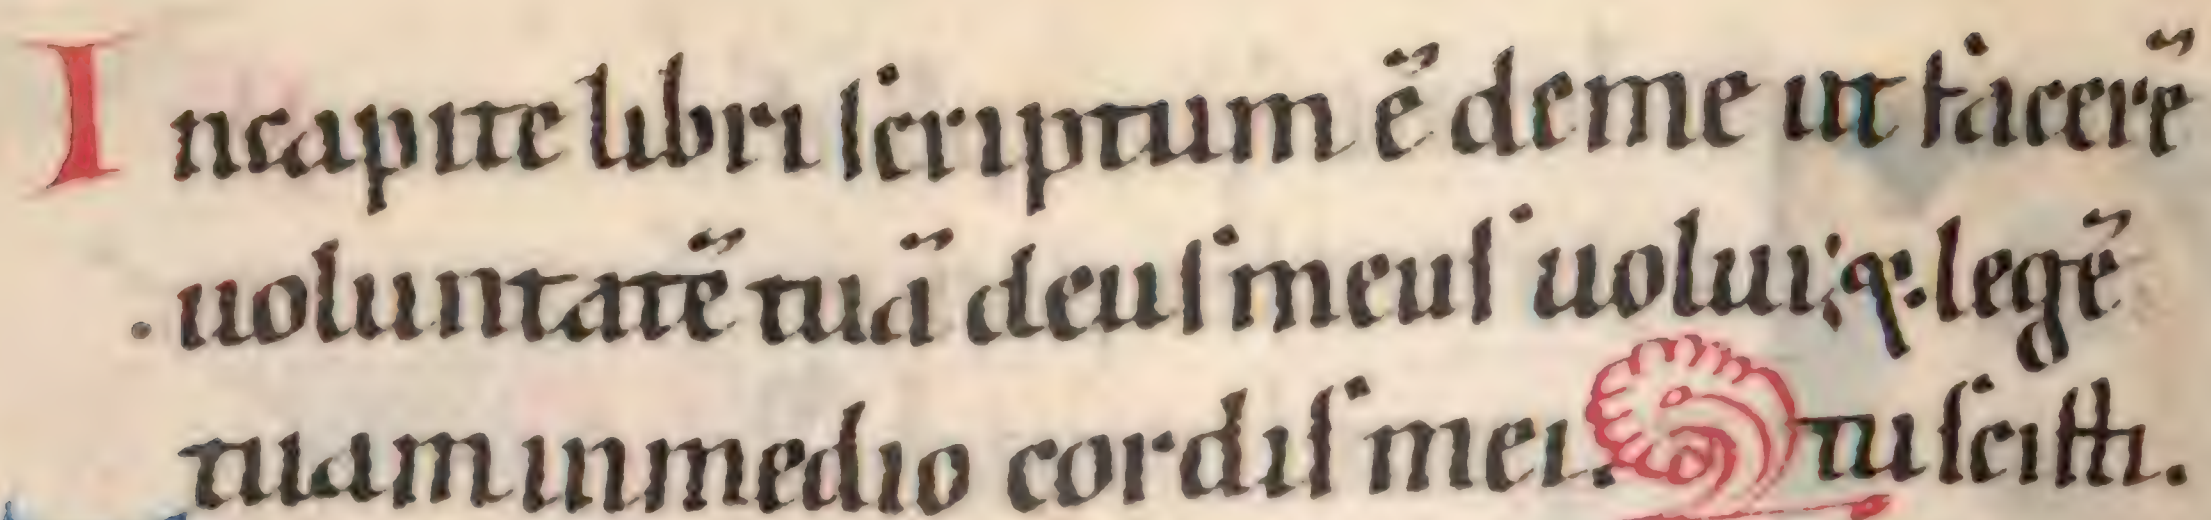 Incapite libri ſcriptum ē deme ut facerē
uoluntatē tuā deuſ meuſ uolui; & legē
tuam inmedio cordiſ mei. tu ſciſti.